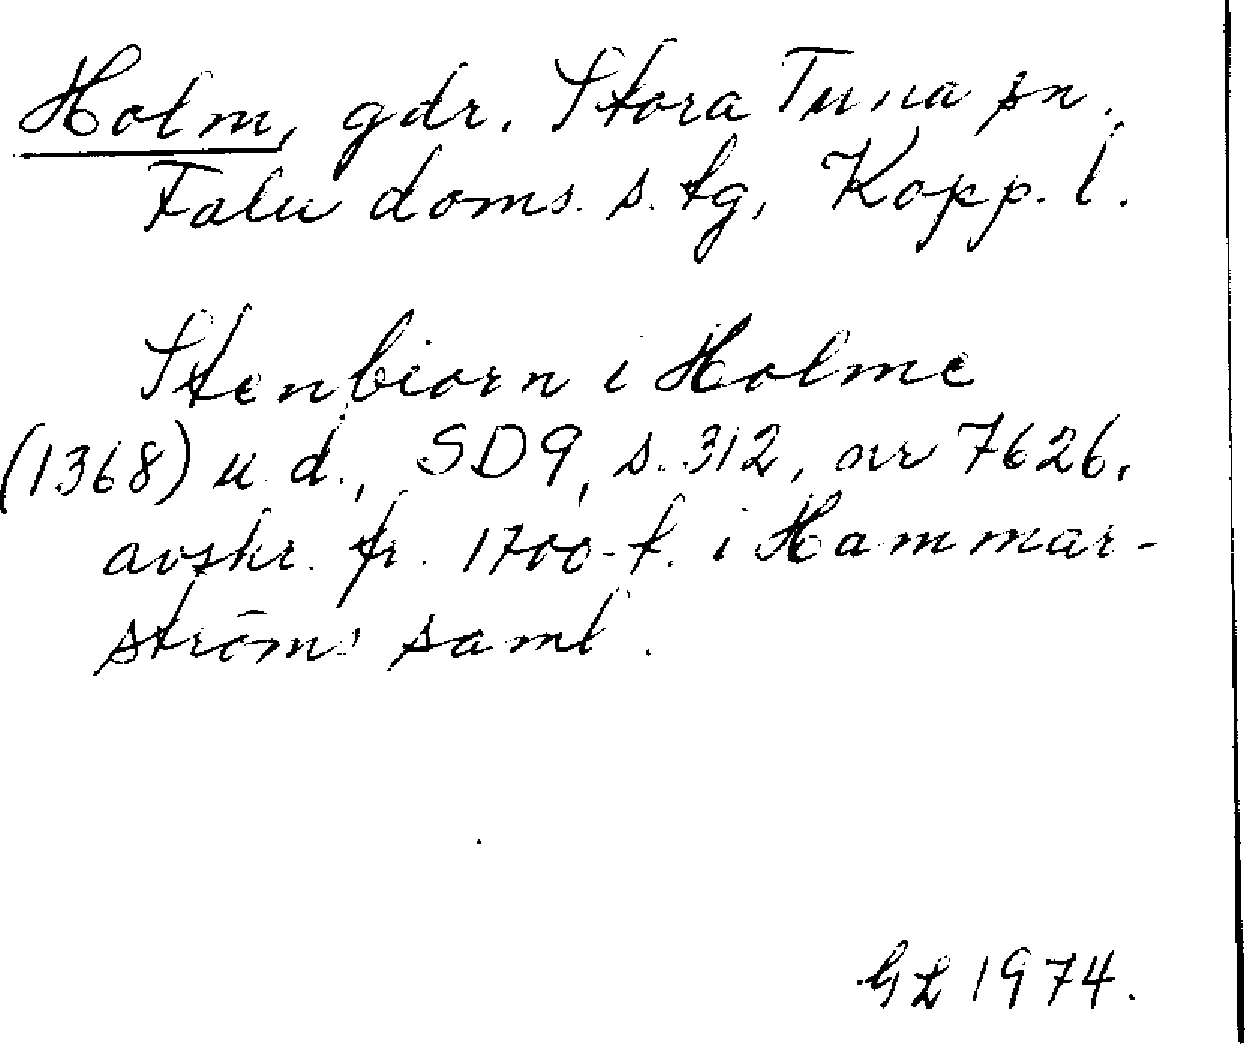 Holm, gdr. Stora Tuna sn.
Falu doms. s. tg, Kopp. l.
Stenbiorn i Holme
(1368) u. d., SD9, s. 312, nr 7626,
avskr. fr. 1700-t. i Hammar-
ströms saml.
GL 1974.